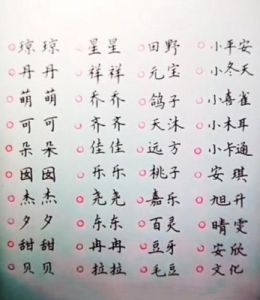 琼琼 星星 田野 小平安
丹丹 祥祥 元宝 小冬天
萌萌 乔乔 鸽子 小喜雀
可可 齐齐 天沫 小木耳
朵朵 佳佳 远方 小卡通
囡囡 乐乐 桃子 安琪
杰杰 尧尧 嘉乐 旭升
夕夕 东东 百灵 晴雯
甜甜 冉冉 豆牙 安欣
贝贝 拉拉 毛豆 文化